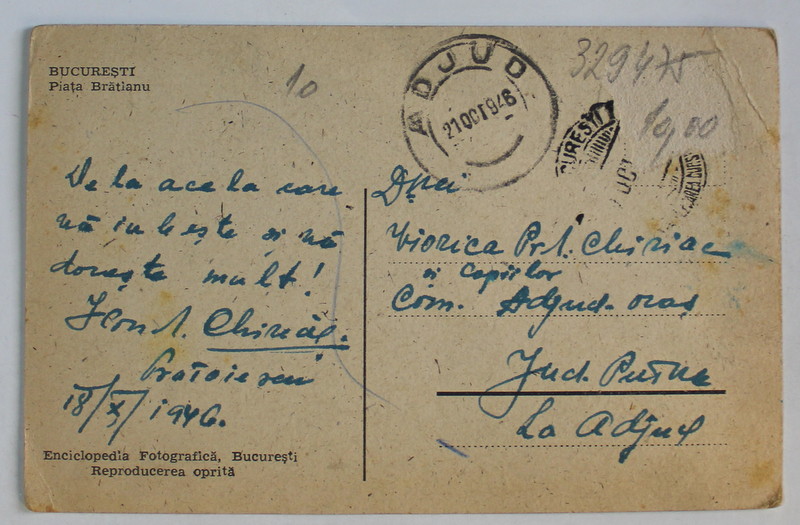 BUCUREȘTI
Piața Brătianu
10
ADJUD
21 OCT 946
329475
10,00
BUCUREȘTI 1
OCT
De la acela care
vă iubește și vă
dorește mult!
Chiriac.
18/X/1946.
Dnei
Viorica Prt. Chiriac
și Copiilor
Com. Adjud. oraș
Jud. Putna
La Adjud
Enciclopedia Fotografică, București
Reproducerea oprită